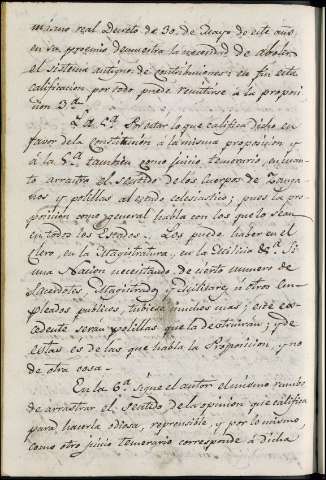 mismo real Decreto de 30. de Mayo de este año,
en su proemio demuestra la necesidad de abolir
el sistema antiguo de contribuciones: en fin esta
calificacion por todo puede remitirse à la proposi-
cion 3.ª
La 4.ª Por estar lo que califica dicho en
favor de la Constitucion à la misma proposicion y
à la 5.ª tambien como juicio temerario, en quan-
to arrastra el sentido de los Cuerpos de Zanga-
nos y polillas al estado eclesiastico; pues la pro-
posicion como general habla con los que lo sean
en todos los Estados. Los puede haber en el
Clero, en la Magistratura, en la Milicia &.ª Si
una Nacion necesitando de cierto numero de
Sacerdotes, Magistrados y Militares, ù otros em-
pleados publicos, tubiese muchos mas; este es-
cedente serán polillas que la destruiran; y de
estas es de las que habla la Proposicion, y no
de otra cosa.
En la 6.ª sigue el autor el mismo rumbo
de arrastrar el sentido de la opinion que califica
para hacerla odiosa, reprensible, y por lo mismo,
como otro juicio temerario corresponde à dicha